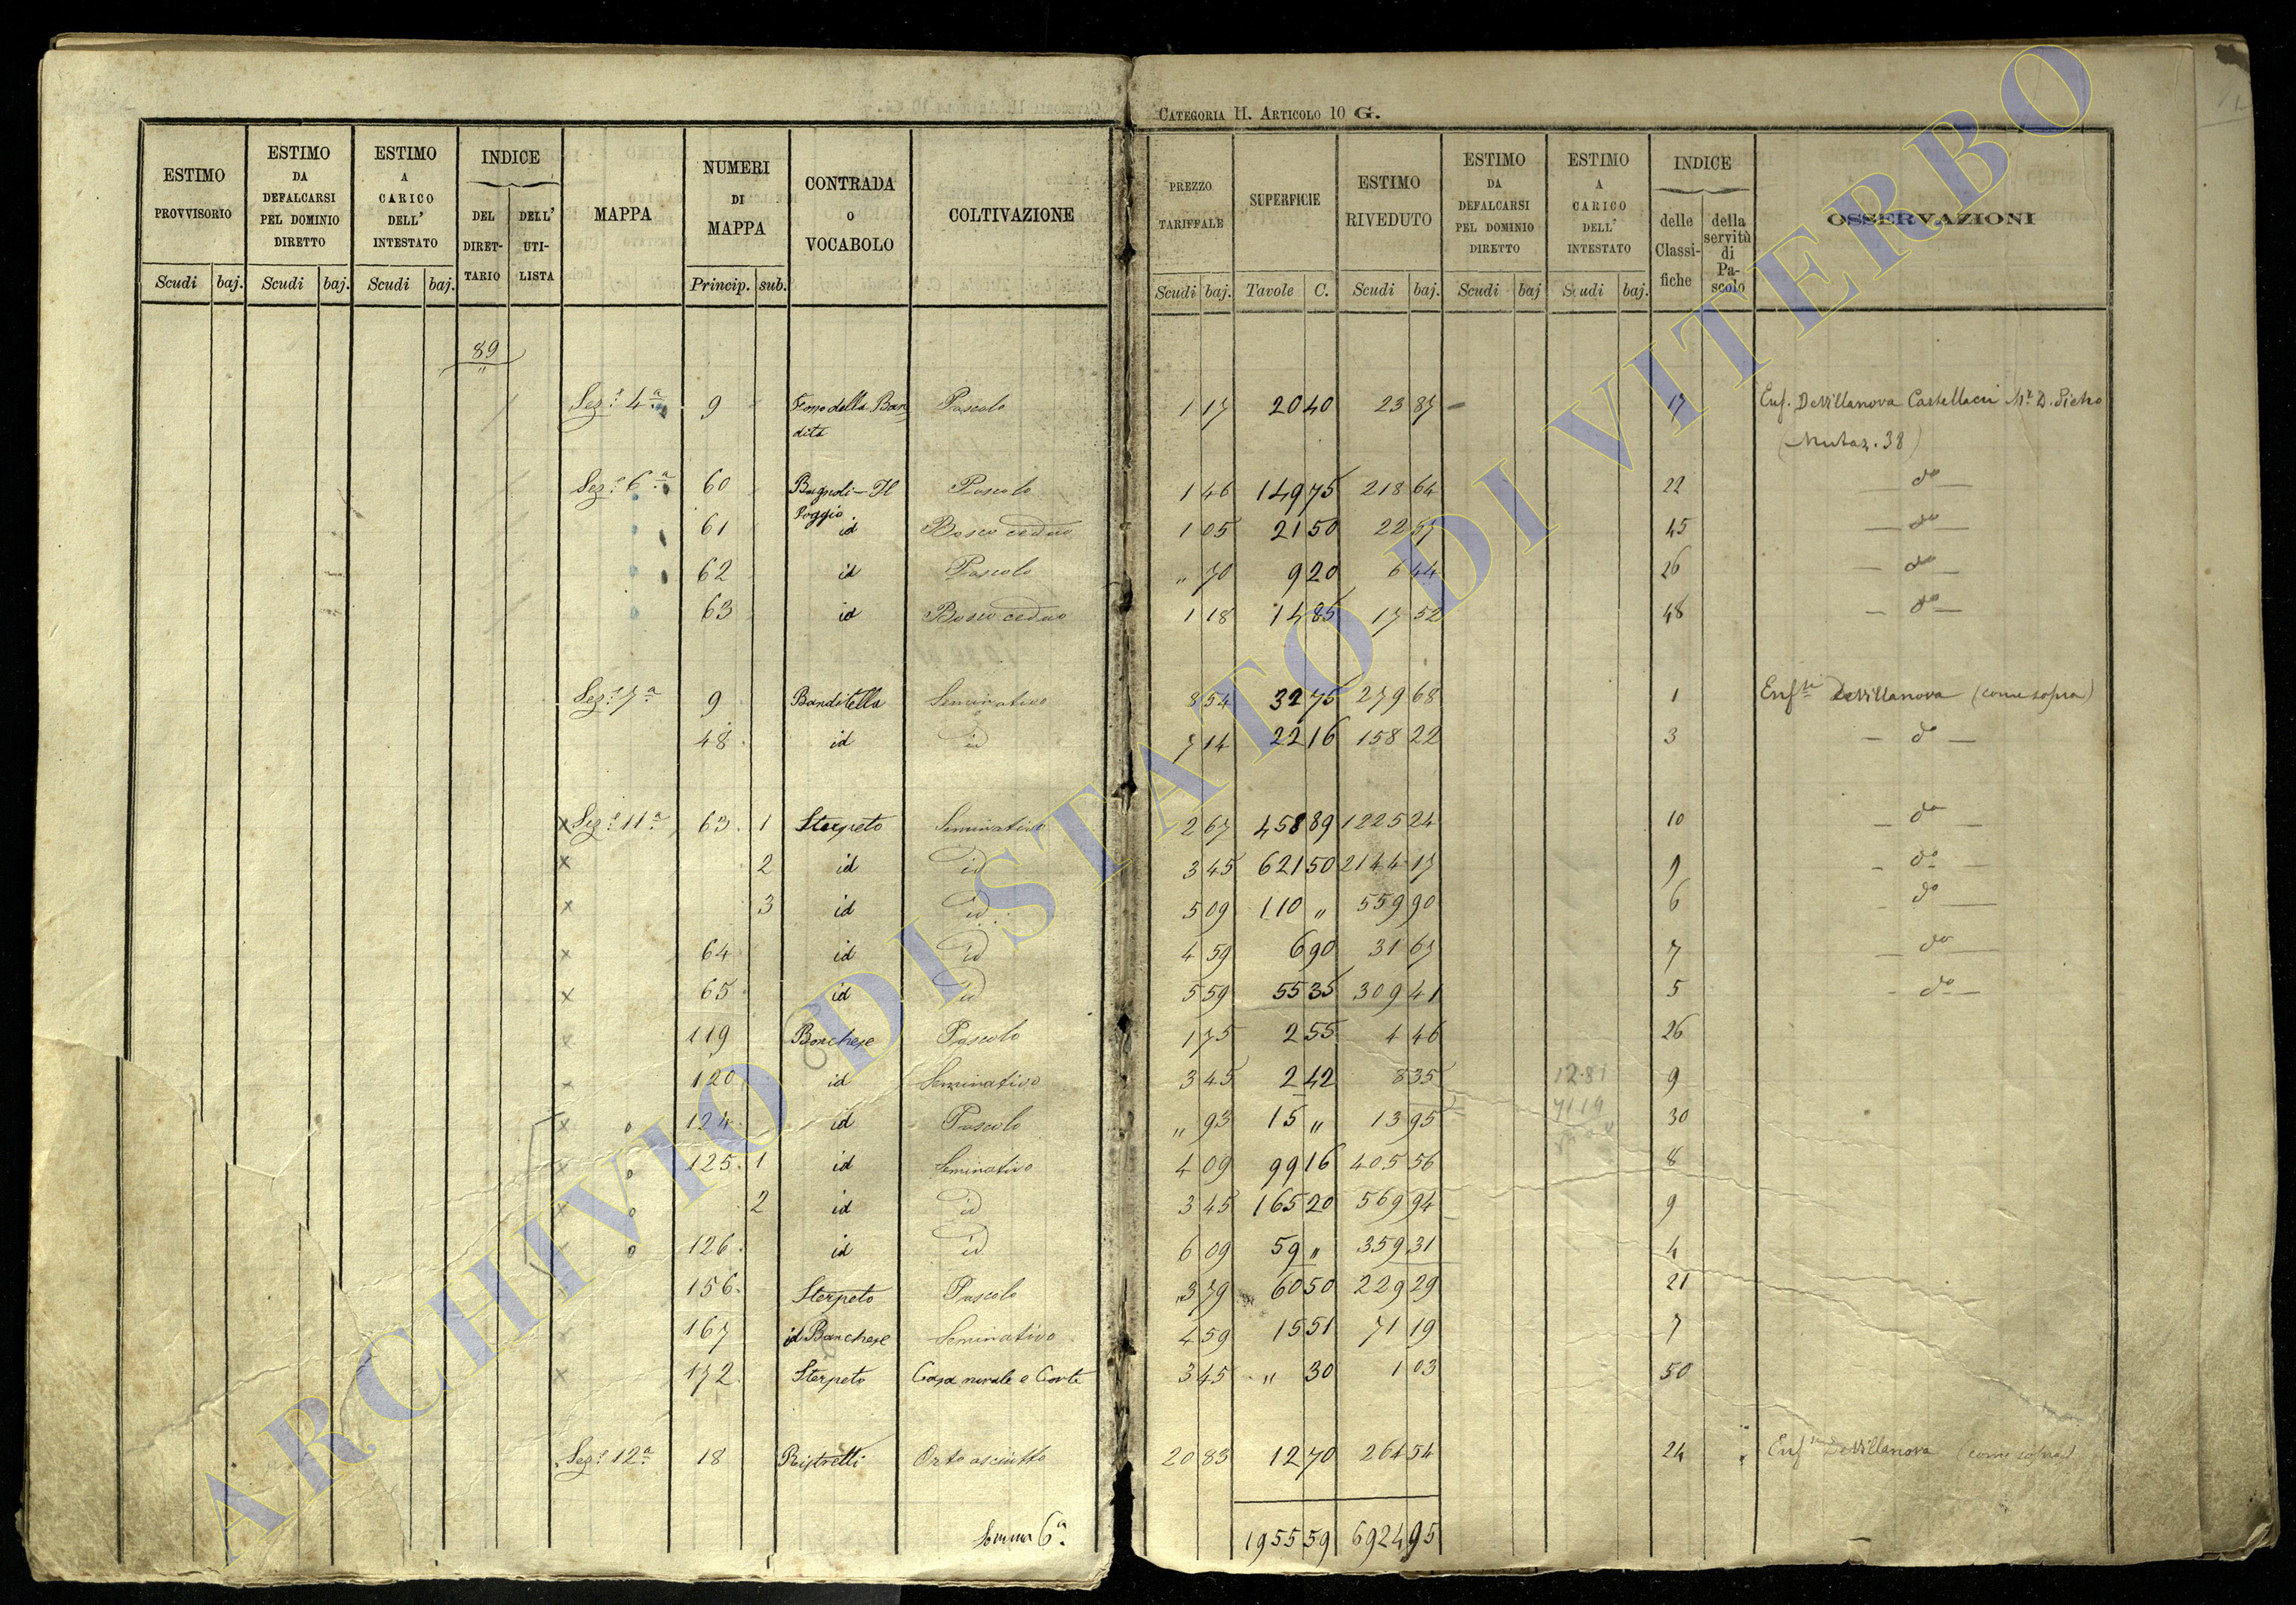 CATEGORIA II. ARTICOLO 10 G.
ESTIMO PROVVISORIO Scudi baj.
ESTIMO DA DEFALCARSI PEL DOMINIO DIRETTO Scudi baj.
ESTIMO A CARICO DELL' INTESTATO Scudi baj.
INDICE DEL DIRETTARIO DELL' UTILISTA
MAPPA
NUMERI DI MAPPA Princip. sub.
CONTRADA O VOCABOLO
COLTIVAZIONE
PREZZO TARIFFALE Scudi baj.
SUPERFICIE Tavole C.
ESTIMO RIVEDUTO Scudi baj.
ESTIMO DA DEFALCARSI PEL DOMINIO DIRETTO Scudi baj
ESTIMO A CARICO DELL' INTESTATO Scudi baj.
INDICE delle Classifiche della servitù di Pascolo
OSSERVAZIONI
89
Sez.e 4a 9 della Bandita Pascolo 1 17 20 40 23 87 17 Enf. DeVillanova Castellacci D. Pietro
(Mutaz. 38)
Sez.e 6a 60 Bagnoli - Il Poggio Pascolo 1 46 149 75 218 64 22 do
61 id Bosco ceduo 1 05 21 50 22 57 45 do
62 id Pascolo " 70 9 20 6 44 26 do
63 id Bosco ceduo 1 18 14 85 17 52 48 do
Sez.e 7a 9 Banditella Seminativo 8 54 32 75 279 68 1 DeVillanova (come sopra)
48 id id 7 14 22 16 158 22 3 do
x Sez.e 11a 63 1 Sterpeto Seminativo 2 67 458 89 1225 24 10 do
x 2 id id 3 45 621 50 2144 17 9 do
x 3 id id 5 09 110 " 559 90 6 do
x 64 id id 4 59 6 90 31 67 7 do
x 65 id id 5 59 55 35 309 41 5 do
x 119 Banchese Pascolo 1 75 2 55 4 46 26
x 120 id Seminativo 3 45 2 42 8 35 12.81 9
x 124 id Pascolo " 93 15 " 13 95 71 19 30
x 125 1 id Seminativo 4 09 99 16 405 56 8
x 2 id id 3 45 165 20 569 94 9
x 126 id id 6 09 59 " 359 31 4
156 Sterpeto Pascolo 3 79 60 50 229 29 21
x 167 id Banchese Seminativo 4 59 15 51 71 19 7
x 172 Sterpeto Casa rurale e Corte 3 45 " 30 1 03 50
Sez.e 12a 18 Ristretti Orto asciutto 20 83 12 70 264 54 24 DeVillanova (come sopra)
Somma 6a 1955 59 6924 95
ARCHIVIO DI STATO DI VITERBO